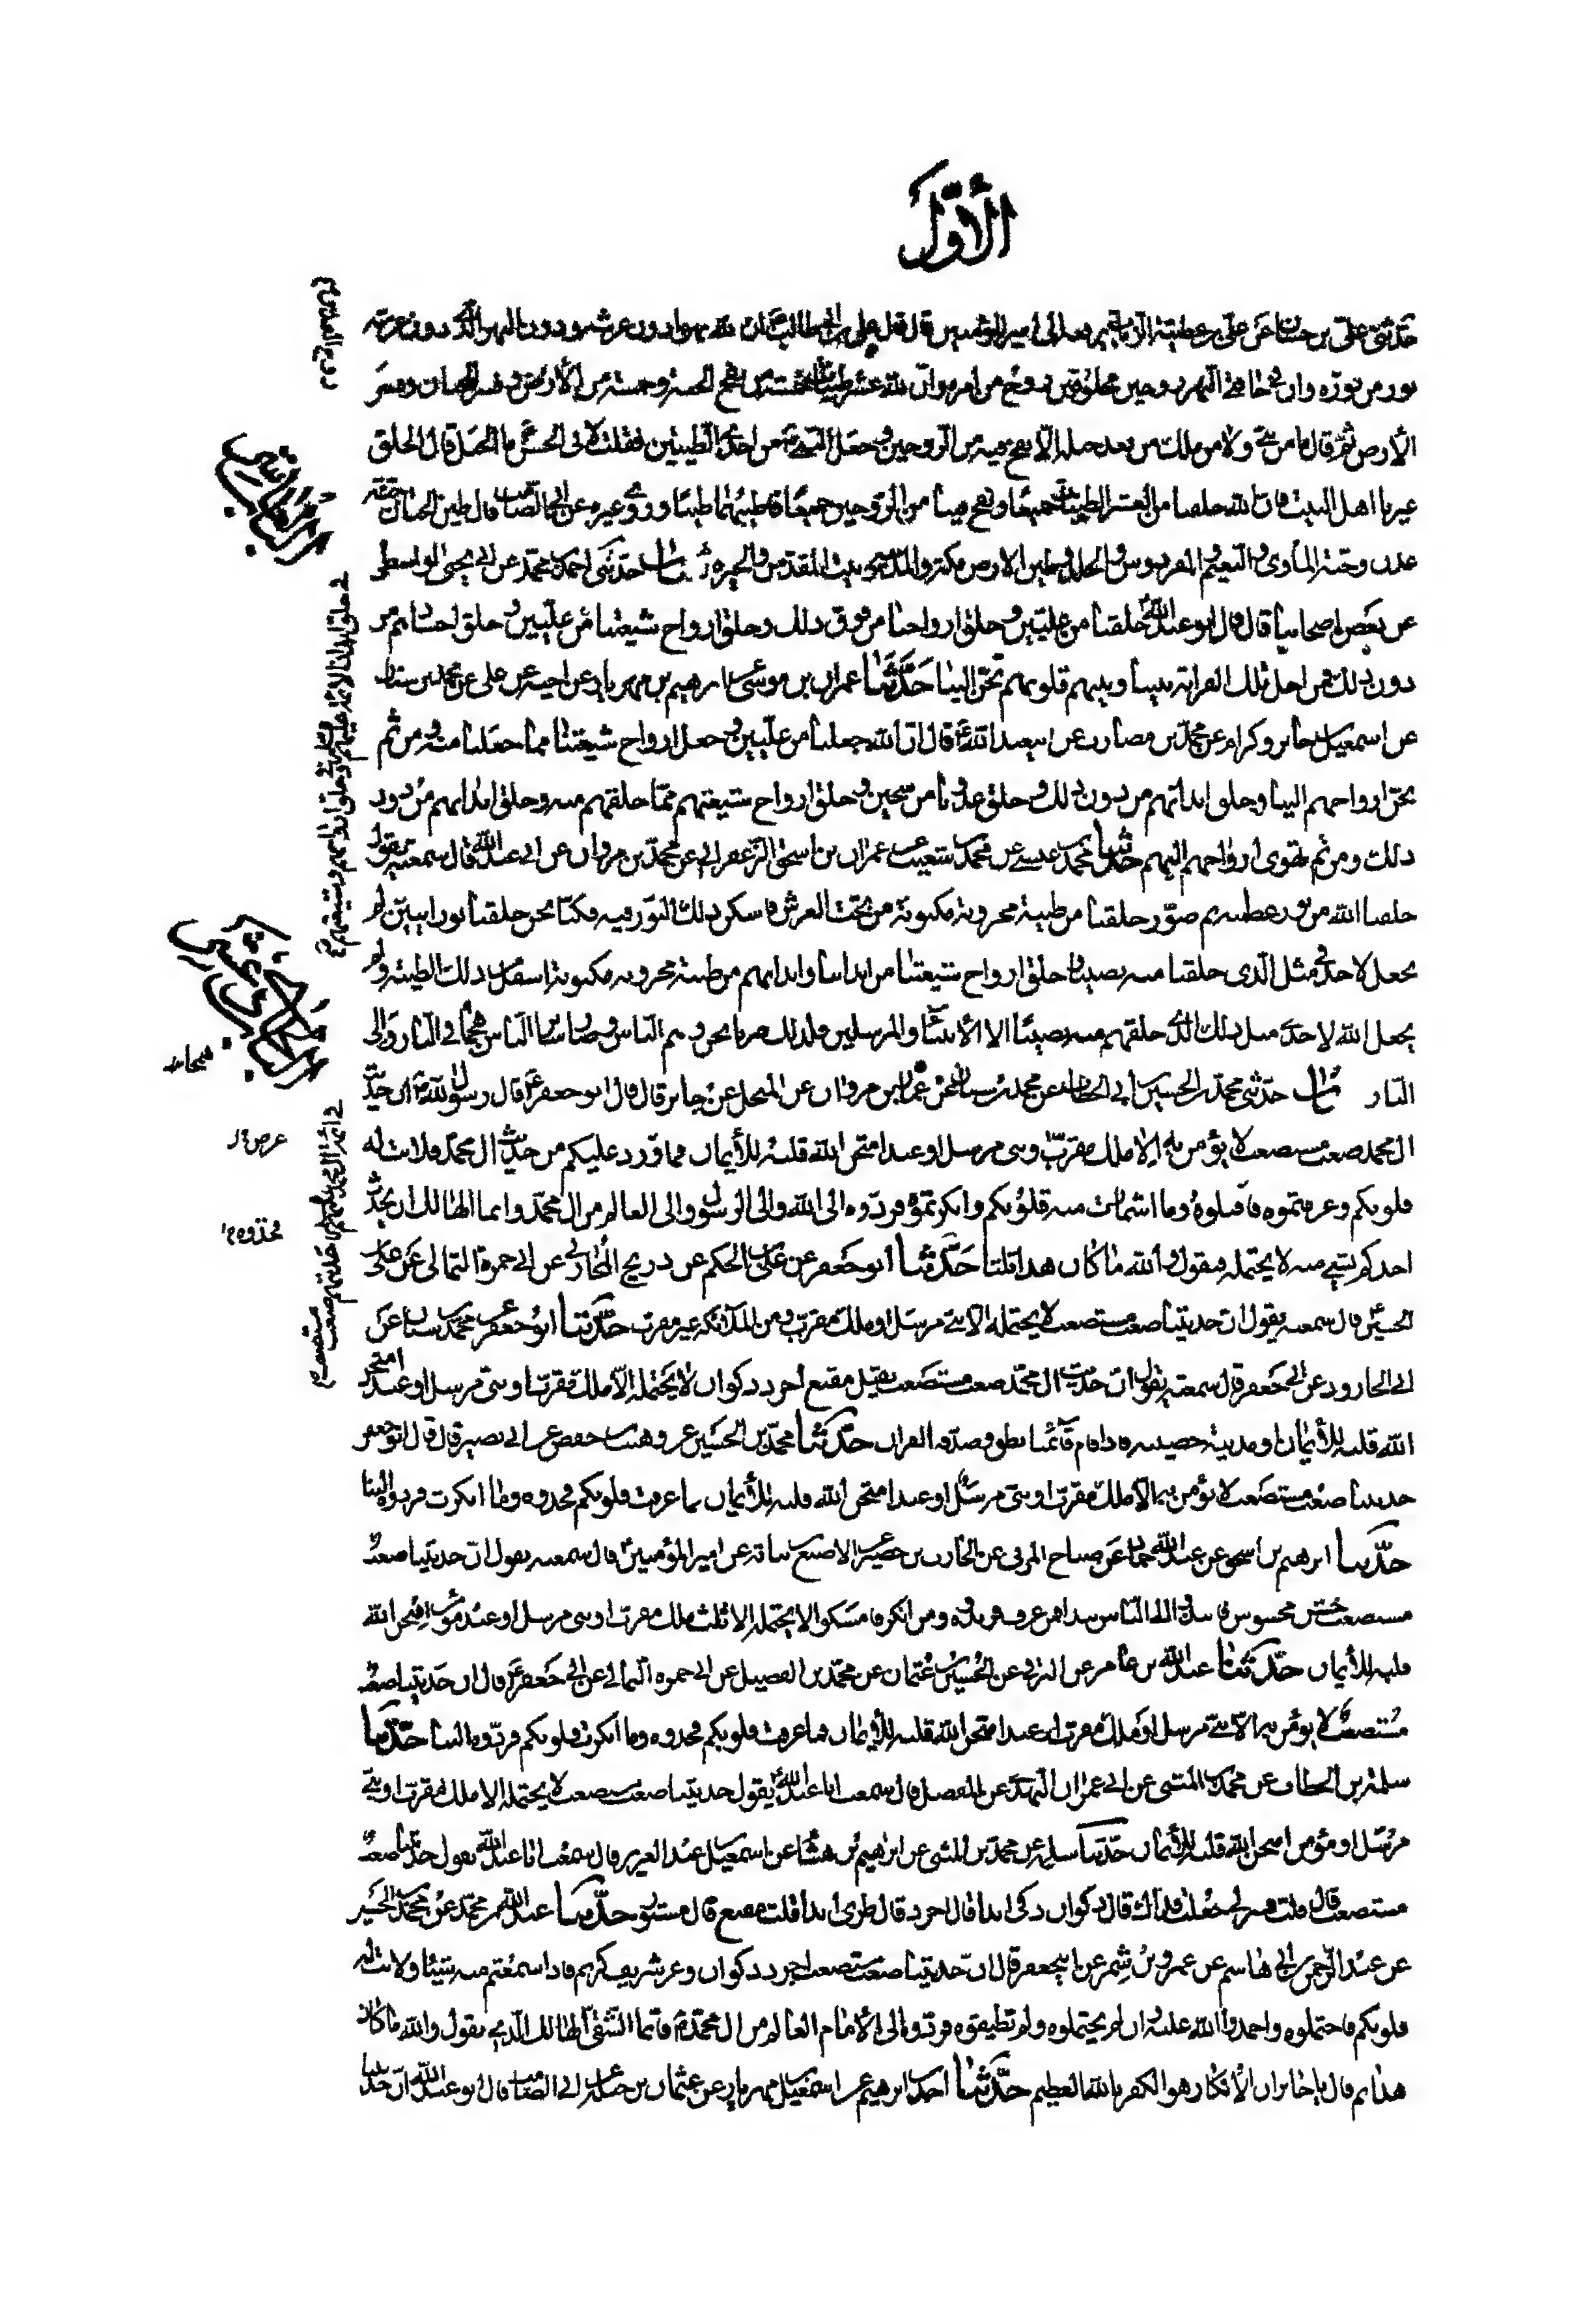 الأوّل
حدثنى علي بن حسان عن علي بن عطية الزيات يرفعه الى امير المؤمنين قال قال علي بن ابى طالب ان لله نهرا دون عرشه ودون النهر الذى دون عرشه
نور من نوره وان فى حافتى النهر روحين مخلوقين روح من امره وان لله عشر طينات خمسة من الجنة وخمسة من الأرض وفسر الجنان وفسر
الأرض ثم قال ما من نبى ولا من ملك من بعد جبله الا نفخ فيه من الروحين وجعل النبى من احدى الطينتين فقلت لابى الحسن ما الجبل قال الخلق
غيرنا اهل البيت فان لله خلقنا من العشر الطينات جميعا ونفخ فينا من الروحين جميعا فاطيبهما طيبا وروى غيره عن ابى الصامت قال طين الجنان جنة
عدن وجنة المأوى والنعيم والفردوس والخلد وطين الارض مكة والمدينة وبيت المقدس والحيرة حدثنى احمد بن محمد عن ابى يحيى الواسطى
عن بعض اصحابنا قال قال ابو عبد الله خلقنا من عليين وخلق ارواحنا من فوق ذلك وخلق ارواح شيعتنا من عليين وخلق اجسادهم من
دون ذلك فمن اجل تلك القرابة بيننا وبينهم قلوبهم تحن الينا حدثنا عمران بن موسى عن ابرهيم بن مهزيار عن اخيه عن علي عن محمد بن سنان
عن اسمعيل بن جابر وكرام عن محمد بن مضارب عن ابى عبد الله قال ان الله جعلنا من عليين وجعل ارواح شيعتنا مما جعلنا منه ومن ثم
تحن ارواحهم الينا وخلق ابدانهم من دون ذلك وخلق عدونا من سجين وخلق ارواح شيعتهم مما خلقهم منه وخلق ابدانهم من دون
ذلك ومن ثم تهوى ارواحهم اليهم حدثنا محمد بن عيسى عن محمد بن شعيب عن عمران بن اسحق الزعفرانى عن محمد بن مروان عن ابى عبد الله قال سمعته يقول
خلقنا الله من نور عظمته ثم صور خلقنا من طينة مخزونة مكنونة من تحت العرش فاسكن ذلك النور فيه فكنا نحن خلقنا نورانيين لم
يجعل لاحد فى مثل الذى خلقنا منه نصيبا وخلق ارواح شيعتنا من ابداننا وابدانهم من طينة مخزونة مكنونة اسفل من ذلك الطينة ولم
يجعل الله لاحد مثل ذلك الذى خلقهم منه نصيبا الا الأنبياء والمرسلين فلذلك صرنا نحن وهم الناس وصار سائر الناس همجا فى النار والى
النار حدثنى محمد بن الحسين بن ابى الخطاب عن محمد بن سنان عن عمار بن مروان عن المنخل عن جابر قال قال ابو جعفر قال رسول الله ان حديث
ال محمد صعب مستصعب لا يؤمن به الا ملك مقرب او نبى مرسل او عبد امتحن الله قلبه للأيمان فما ورد عليكم من حديث ال محمد فلانت له
قلوبكم وعرفتموه فاقبلوه وما اشمأزت منه قلوبكم وانكرتموه فردوه الى الله والى الرسول والى العالم من ال محمد وانما الهالك ان يحدث
احدكم بشىء منه لا يحتمله فيقول والله ما كان هذا ثلثا حدثنا ابو جعفر عن علي بن الحكم عن ذريح المحاربى عن ابى حمزة الثمالى عن علي بن
الحسين قال سمعته يقول ان حديثنا صعب مستصعب لا يحتمله الا نبى مرسل او ملك مقرب ومن الملائكة غير مقرب حدثنا ابو جعفر عن محمد بن سنان عن
ابى الجارود عن ابى جعفر قال سمعته يقول ان حديث ال محمد صعب مستصعب ثقيل مقنع اجرد ذكوان لا يحتمله الا ملك مقرب او نبى مرسل او عبد امتحن
الله قلبه للأيمان او مدينة حصينة فاذا قام قائمنا نطق وصدقه القران حدثنا محمد بن الحسين عن وهيب بن حفص عن ابى بصير قال قال ابو جعفر
حديثنا صعب مستصعب لا يؤمن به الا ملك مقرب او نبى مرسل او عبد امتحن الله قلبه للأيمان فما عرفت قلوبكم فخذوه وما انكرت فردوه الينا
حدثنا ابرهيم بن اسحق عن عبد الله بن حماد عن صباح المزنى عن الحارث بن حصيرة عن الاصبغ بن نباتة عن امير المؤمنين قال سمعته يقول ان حديثنا صعب
مستصعب خشن مخشوش فانبذوا الى الناس نبذا فمن عرف فزيدوه ومن انكر فامسكوا لا يحتمله الا ثلث ملك مقرب او نبى مرسل او عبد مؤمن امتحن الله
قلبه للأيمان حدثنا عبد الله بن عامر عن البرقى عن الحسين بن عثمان عن محمد بن الفضيل عن ابى حمزة الثمالى عن ابى جعفر قال ان حديثنا صعب
مستصعب لا يؤمن به الا نبى مرسل او ملك مقرب او عبد امتحن الله قلبه للأيمان فما عرفت قلوبكم فخذوه وما انكرت قلوبكم فردوه الينا حدثنا
سلمة بن الخطاب عن محمد بن المثنى عن ابى عمران النهدى عن المفضل قال سمعت ابا عبد الله يقول حديثنا صعب مستصعب لا يحتمله الا ملك مقرب او نبى
مرسل او مؤمن امتحن الله قلبه للأيمان حدثنا سلمة عن محمد بن المثنى عن ابرهيم بن هشام عن اسمعيل بن عبد العزيز قال سمعت ابا عبد الله يقول حديثنا صعب
مستصعب قال قلت فسر لى جعلت فداك قال ذكوان ذكى ابدا قال اجرد قال طرى ابدا قلت مقنع قال مستور حدثنا عبد الله بن محمد عن محمد بن الحسين
عن عبد الرحمن بن ابى هاشم عن عمرو بن شمر عن ابى جعفر قال ان حديثنا صعب مستصعب اجرد ذكوان وعر شريف كريم فاذا سمعتم منه شيئا ولانت له
قلوبكم فاحتملوه واحمدوا الله عليه وان لم يحتملوه ولم تطيقوه فردوه الى الأمام العالم من ال محمد فانما الشقى الهالك الذى يقول والله ما كان
هذا ثم قال يا جابر ان الأنكار هو الكفر بالله العظيم حدثنا احمد بن ابرهيم عن اسمعيل بن مهزيار عن عثمان بن جبلة عن ابى الصامت قال ابو عبد الله ان حديثنا